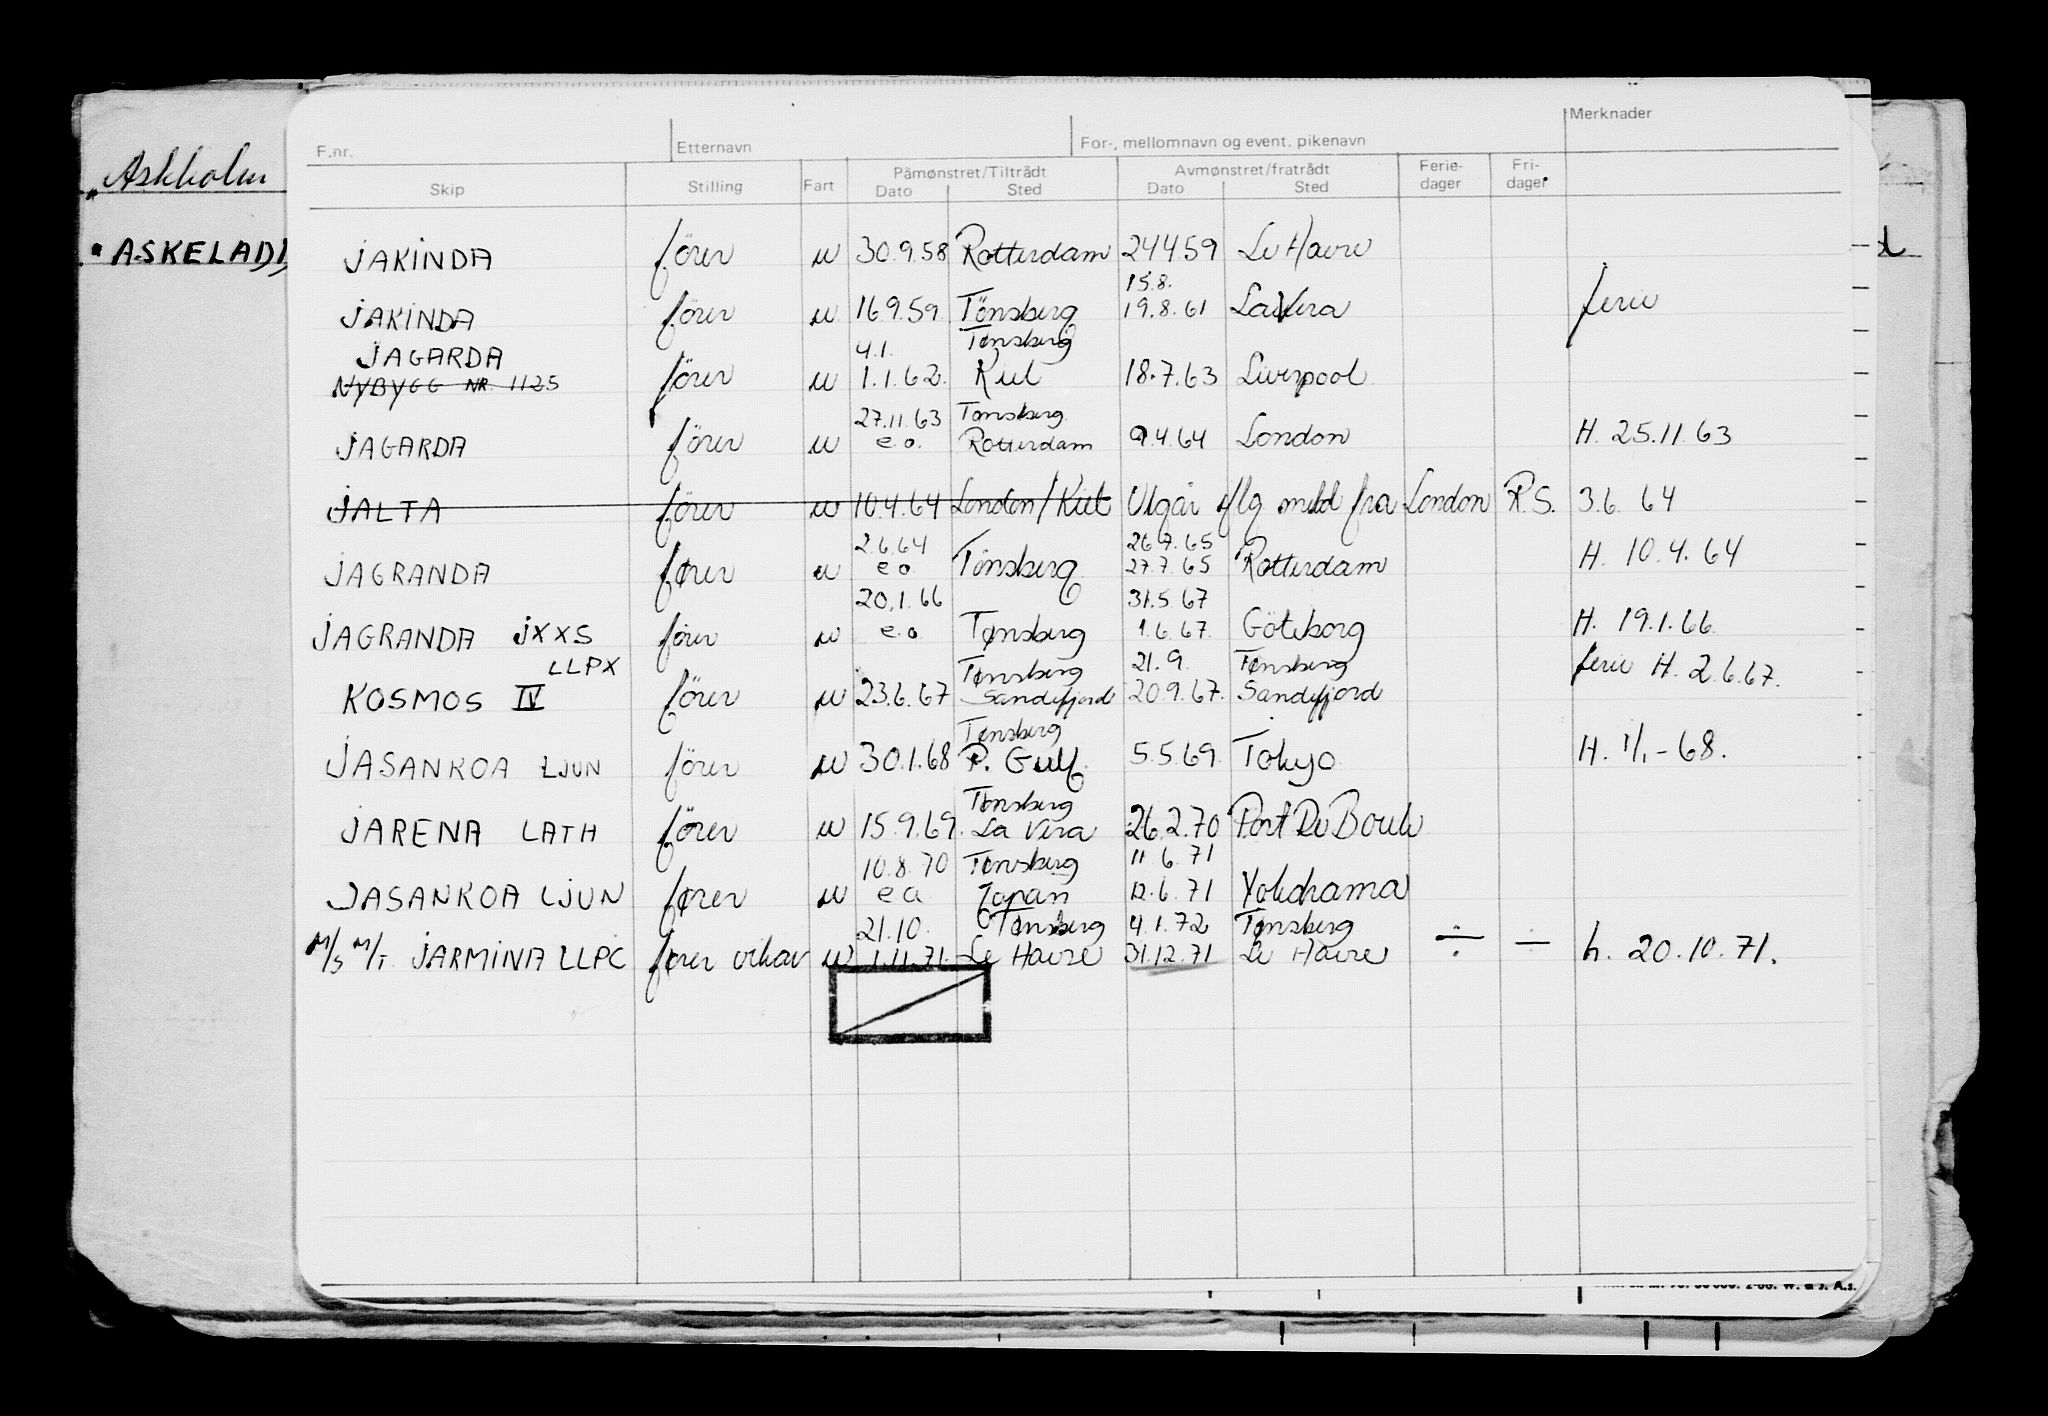 Askholm
ASKELADD
F.nr. Etternavn For-, mellomnavn og event. pikenavn Merknader
Skip Stilling Fart Påmønstret/Tiltrådt Dato Sted Avmønstret/fratrådt Dato Sted Ferie-dager Fri-dager
JAKINDA fører u 30.9.58 Rotterdam 24.4.59 Le Havre
15.8.
JAKINDA fører u 16.9.59 Tönsberg 19.8.61 LaVera ferie
JAGARDA 4.1. Tønsberg
NYBYGG NR. 1125 fører u 1.1.62 Kiel 18.7.63 Liverpool
27.11.63 Tønsberg
JAGARDA fører u e.o. Rotterdam 9.4.64 London H. 25.11.63
JALTA fører u 10.4.64 London/Kiel Utgår iflg meld fra London R.S. 3.6.64
2.6.64 26.7.65
JAGRANDA fører u e.o. Tønsberg 27.7.65 Rotterdam H. 10.4.64
20.1.66 31.5.67
JAGRANDA JXXS fører u e.o Tønsberg 1.6.67. Göteborg H. 19.1.66
LLPX Tønsberg 21.9. Tønsberg ferie H. 2.6.67.
KOSMOS IV fører u 23.6.67 Sandefjord 20.9.67. Sandefjord
Tønsberg
JASANKOA LJUN fører u 30.1.68 P. Gulf 5.5.69 Tokyo H. 1/1-68.
Tønsberg
JARENA LATH fører u 15.9.69. La Vera 26.2.70 Port De Bouk
10.8.70 Tønsberg 11.6.71
JASANKOA LJUN fører u e.o Japan 12.6.71 Yokohama
21.10. Tønsberg 4.1.72 Tønsberg
M/S M/T JARMINA LLPC fører vikar u 1.11.71. Le Havre 31.12.71 Le Havre ÷ — h. 20.10.71.
W. & J. A.s.